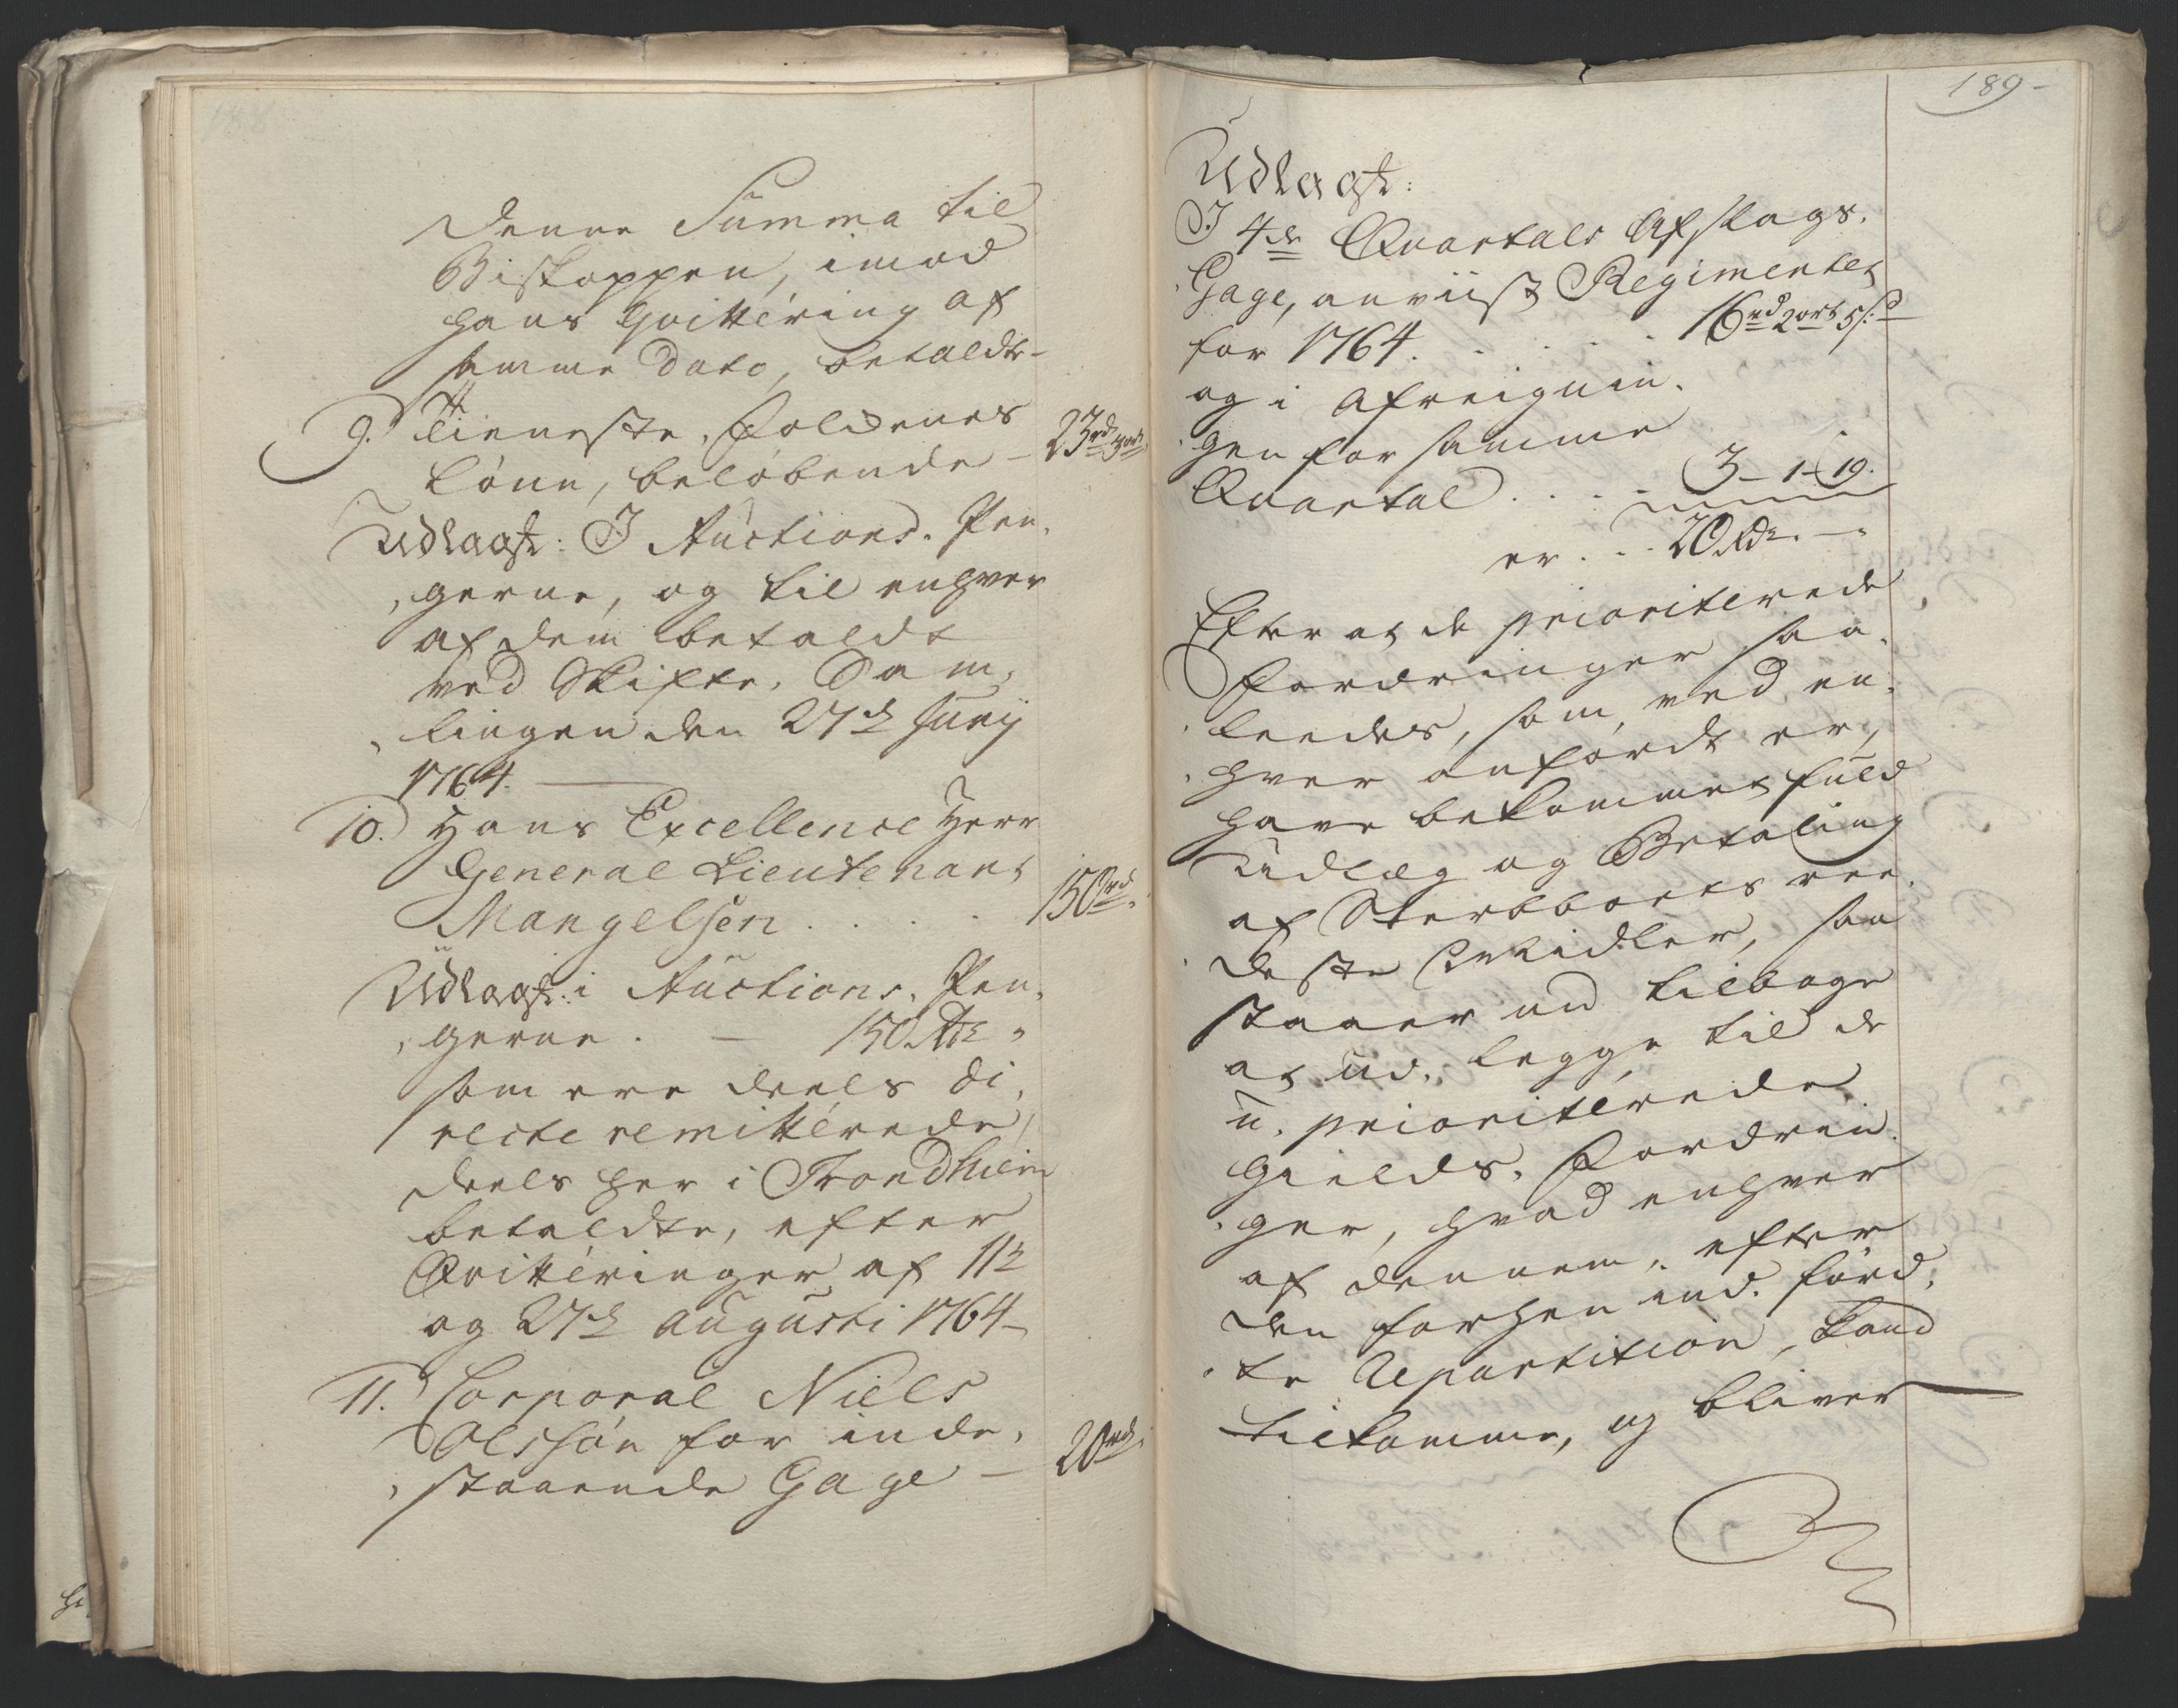 denne Summa til
Biskoppen, imod
hans Qvittéring af
samme Dato, betaldt-
9. Tieneste, Folckenes
Lönn, belöbende - 23rd
Udlagt: I Auctions, Pen,
,gerne, og til enhver
af dem betaldt
ved Skifte, Sam,
,lingen den 27de Junij
1764.
10. Hans Excellence Herr
General Lieutenant
Mangelsen . . . 150rd.
Udlagt: i Auctions, Pen,
,gerne. - 150 Rdr „
som ere deels di,
recte remittérede,
deels her i Trondhiem
betaldte, efter
Qvittéringer af 11te
og 27de Augusti 1764-
11. Corporal Niels
Olssön for inde,
,staaende Gage - 20rd,
189-
Udlagt:
I 4de Qvartals Afslags,
,Gage, anviist Regimentet
for 1764. . . . . 16rd 2ort 5s:
og i Afreignin,
,gen for samme
Qvartal . . . . 3 - 1 - 19.
er . . . 20 Rdr. - „
Efter at de prioriterede
Fordringer saa,
,leedes, som, ved en,
,hver anfördt er,
have bekommet fuld
Udlæg og Betaling
af Sterbboets ree,
,deste Midler, saa
staaer nu tilbage
at ud, legge til de
u, prioritérede
Gields, Fordrin,
,ger, hvad enhver
af dennem, efter
den forhen ind, förd,
,te Repartition, kand
tilkomme, og bliver